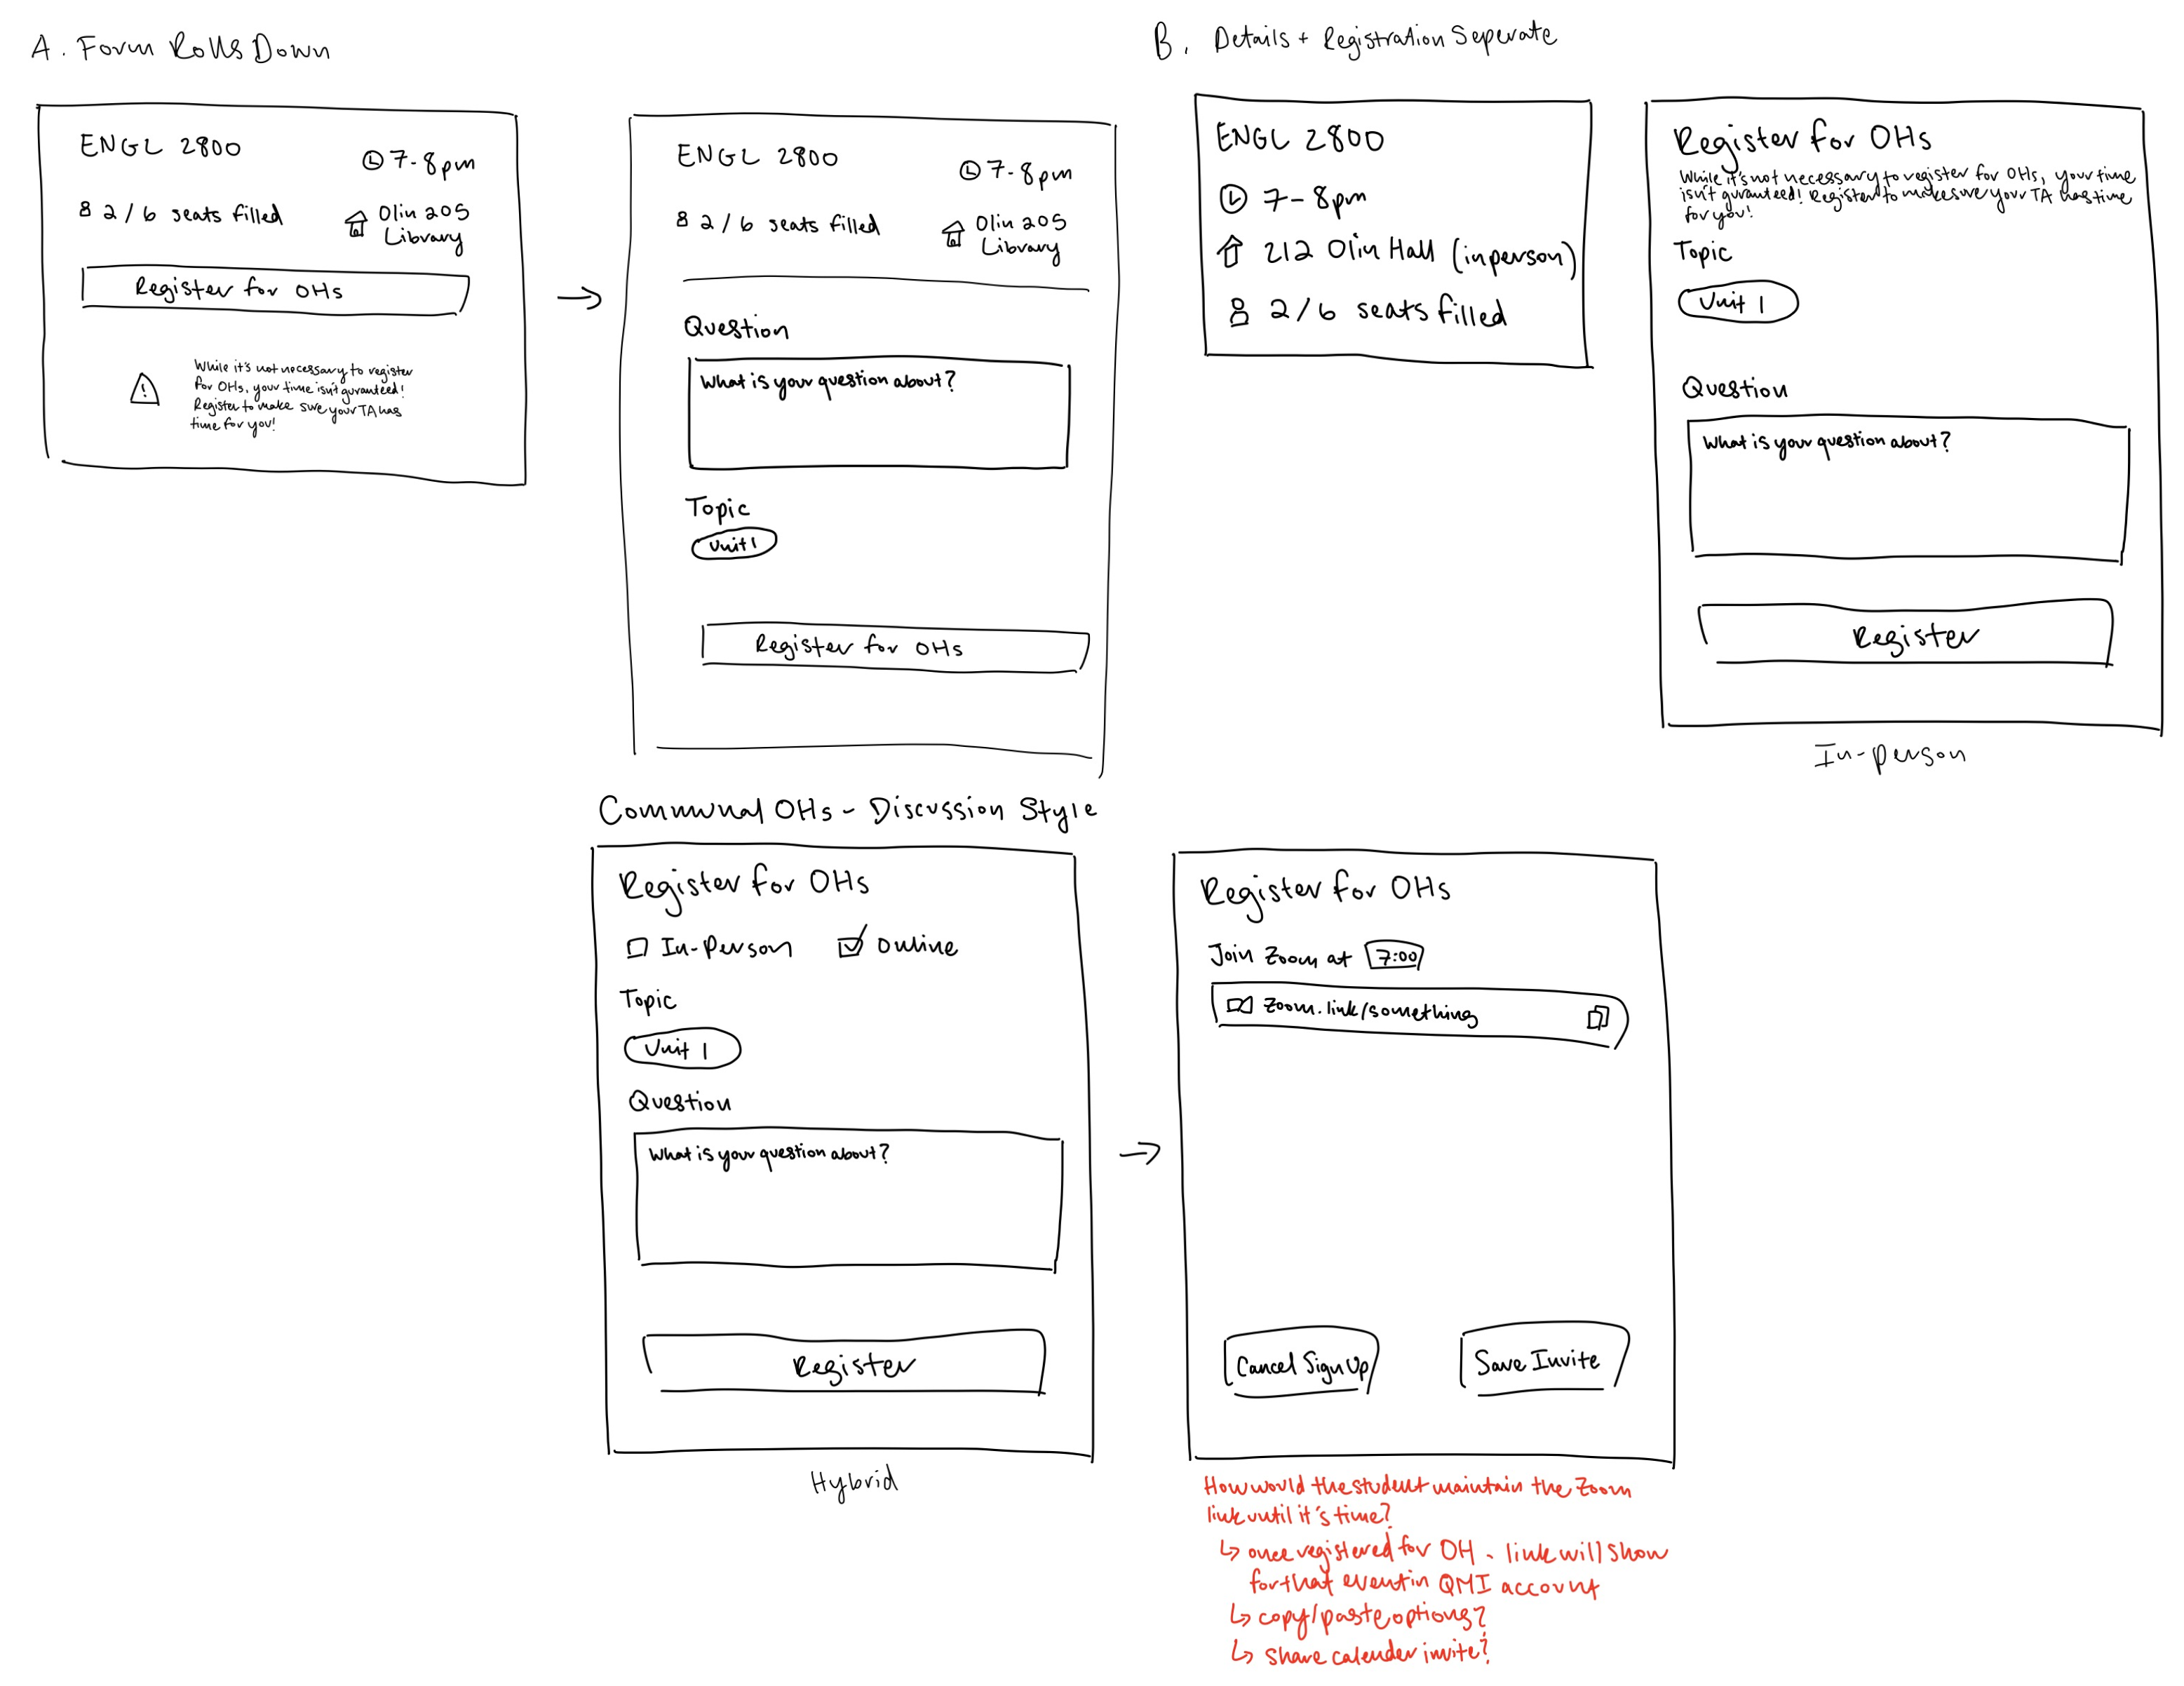 A. Form Rolls Down
ENGL 2800
7-8pm
2/6 seats filled
Olin 205
Library
Register for OHs
While it's not necessary to register
for OHs, your time isn't guranteed!
Register to make sure your TA has
time for you!
ENGL 2800
7-8pm
2/6 seats filled
Olin 205
Library
Question
What is your question about?
Topic
Unit 1
Register for OHs
B. Details + Registration Seperate
ENGL 2800
7-8pm
212 Olin Hall (inperson)
2/6 seats filled
Register for OHs
While it's not necessary to register for OHs, your time
isn't guranteed! Register to make sure your TA has time
for you!
Topic
Unit 1
Question
What is your question about?
Register
In-person
Communal OHs - Discussion Style
Register for OHs
In-Person
Online
Topic
Unit 1
Question
What is your question about?
Register
Hybrid
Register for OHs
Join Zoom at 7:00
Zoom.link/something
Cancel Sign Up
Save Invite
How would the student maintain the Zoom
link until it's time?
↳ once registered for OH - link will show
for that event in QMI account
↳ copy/paste options?
↳ share calender invite?